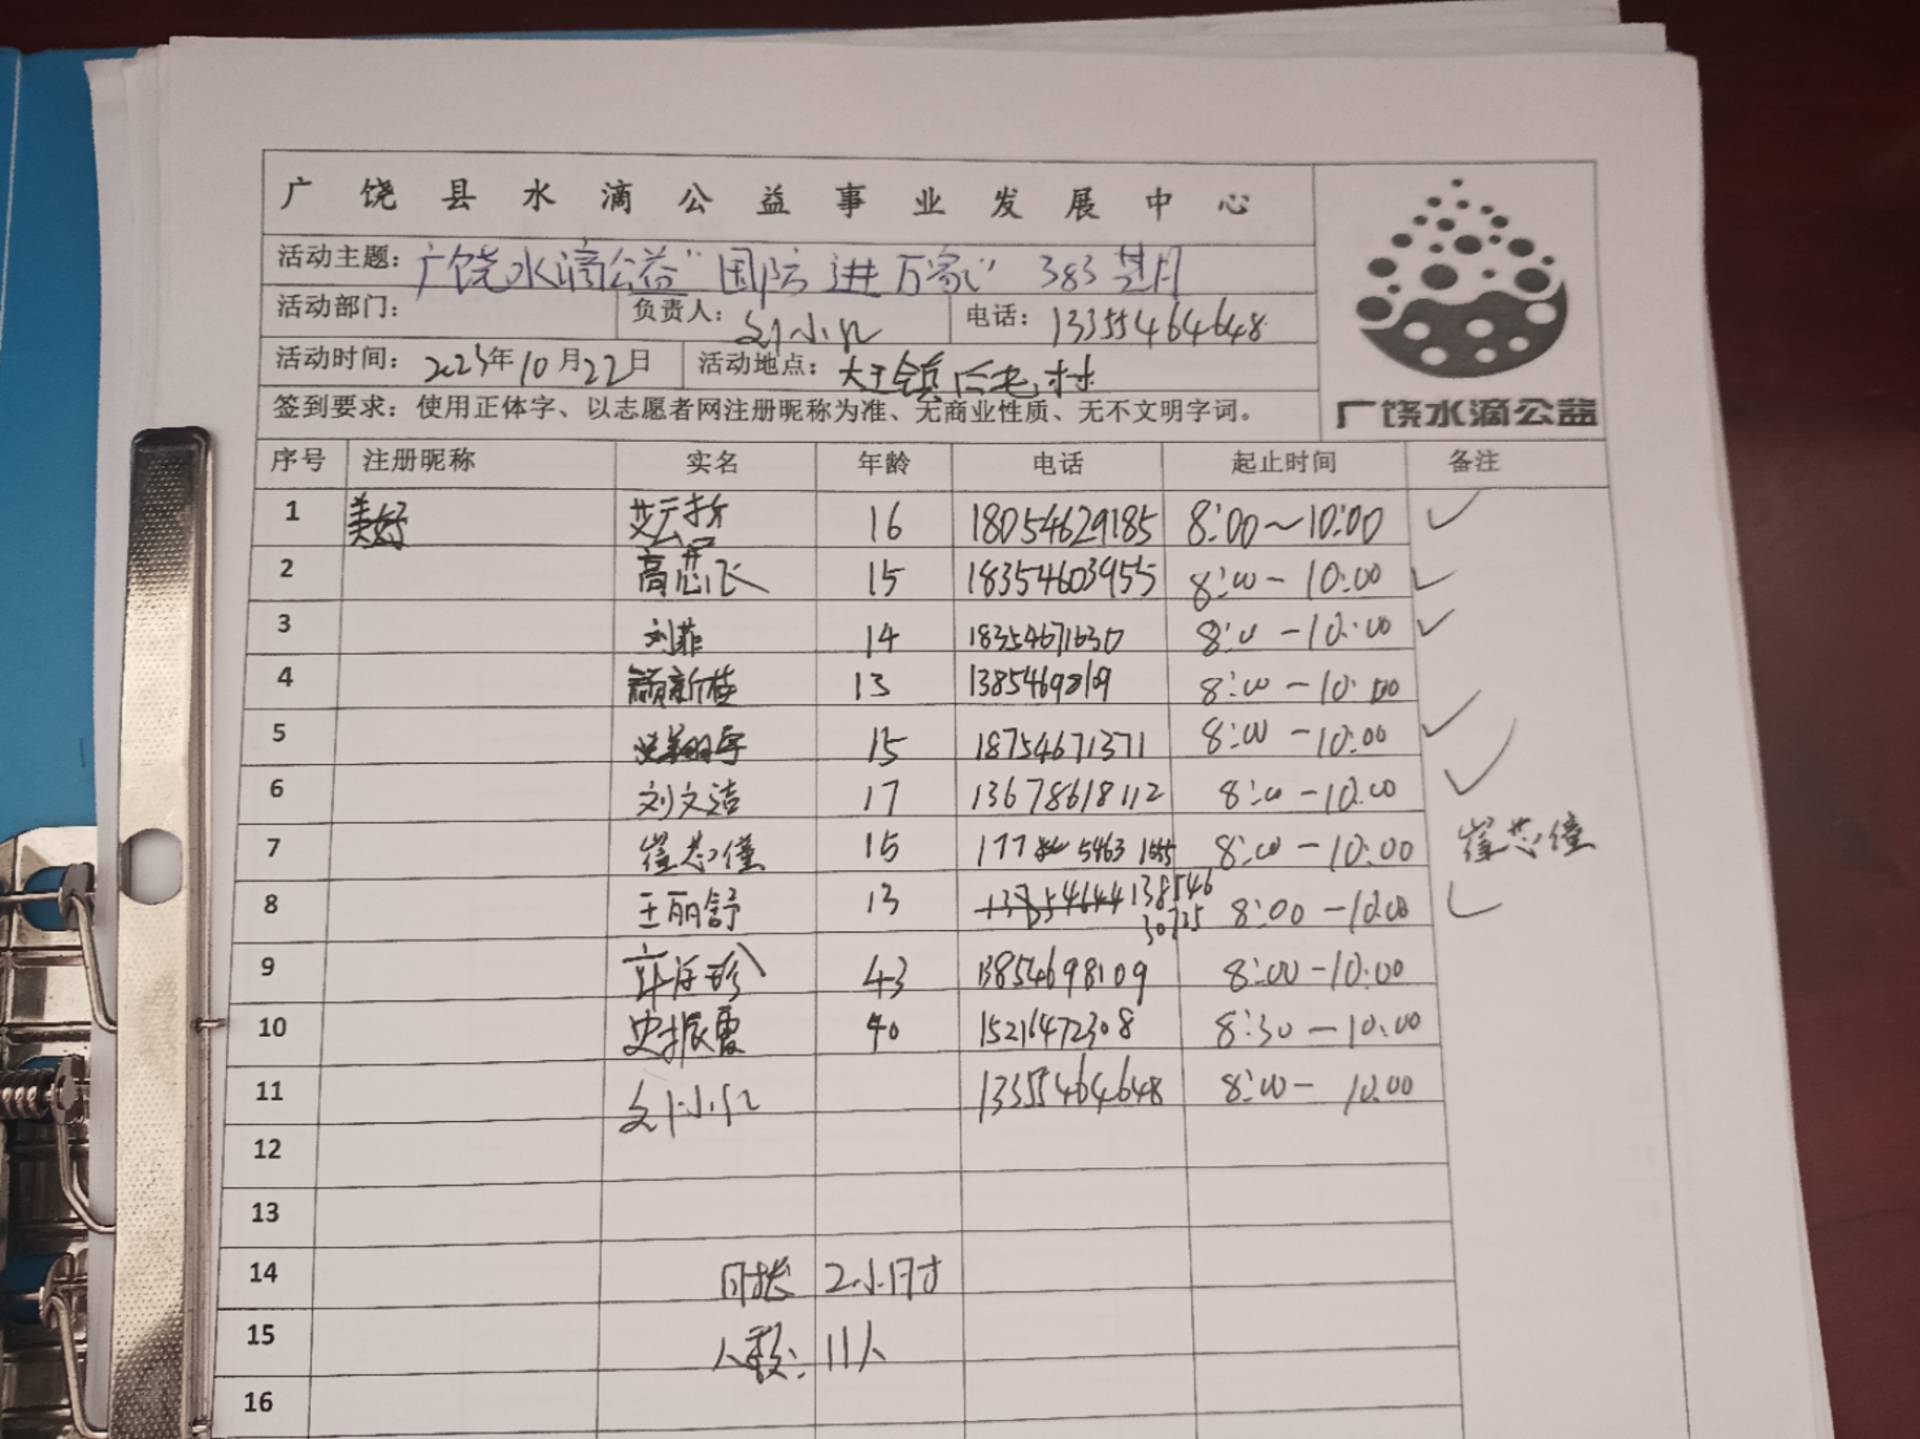 广饶县水滴公益事业发展中心
活动主题：广饶水滴公益"国防进万家" 383期
活动部门： 负责人：刘小红 电话：13355464648
活动时间：2023年10月22日 活动地点：大王镇后屯村
签到要求：使用正体字、以志愿者网注册昵称为准、无商业性质、无不文明字词。
广饶水滴公益
序号 注册昵称 实名 年龄 电话 起止时间 备注
1 16 18054629185 8:00～10:00 ✓
2 高芯飞 15 18354603955 8:00-10:00 ✓
3 刘菲 14 18354671630 8:00-10:00 ✓
4 颜新桂 13 13854698109 8:00-10:00
5 15 18754671371 8:00-10:00 ✓
6 刘文洁 17 13678618112 8:00-10:00 ✓
7 崔芯僮 15 177 5463 1555 8:00-10:00 崔芯僮
8 王丽舒 13 13854630735 8:00-10:00 ✓
9 43 13854698109 8:00-10:00
10 史振霞 40 15216472308 8:30-10:00
11 刘小红 13355464648 8:00-10:00
12
13
14 时长 2小时
15 人数：11人
16